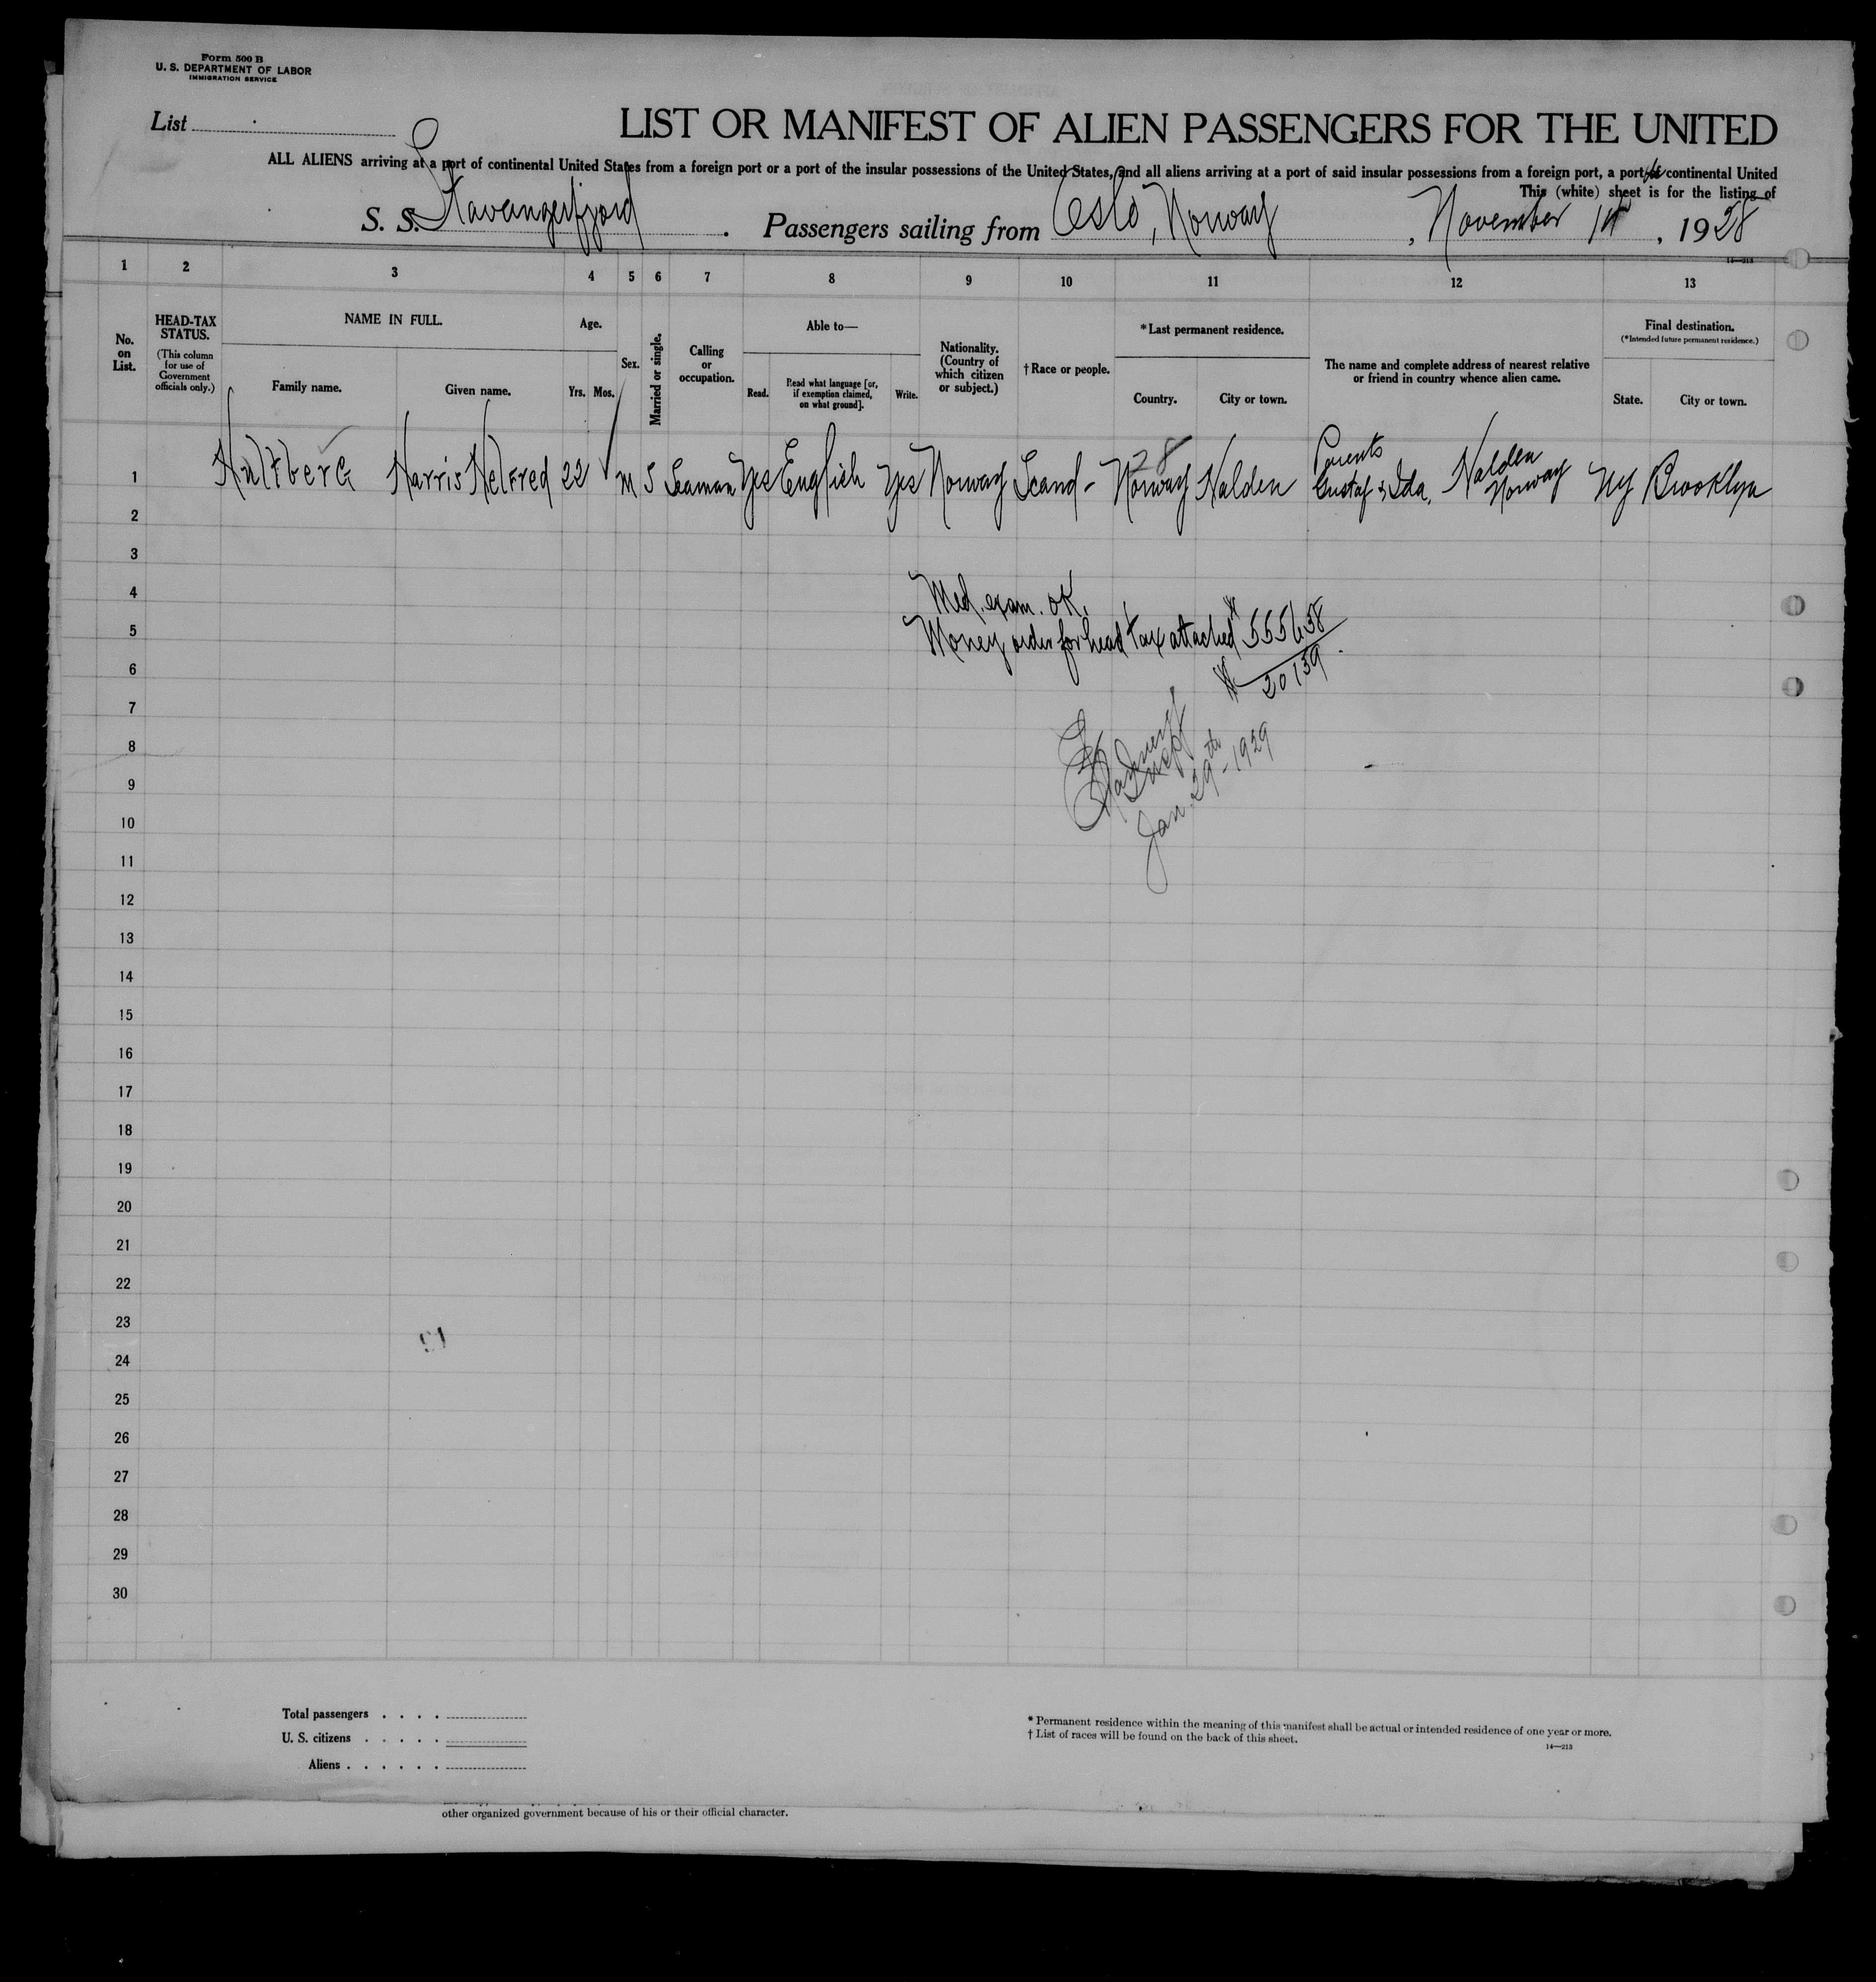 Form 500 B
U. S. DEPARTMENT OF LABOR
IMMIGRATION SERVICE
List
LIST OR MANIFEST OF ALIEN PASSENGERS FOR THE UNITED
ALL ALIENS arriving at a port of continental United States from a foreign port or a port of the insular possessions of the United States, and all aliens arriving at a port of said insular possessions from a foreign port, a port continental United
This (white) sheet is for the listing of
S. S. Stavangerfjord. Passengers sailing from Oslo, Norway, November, 1928
14—213
1 2 3 4 5 6 7 8 9 10 11 12 13
No. on List.
HEAD-TAX STATUS.
(This column for use of Government officials only.)
NAME IN FULL.
Family name. Given name.
Age.
Yrs. Mos.
Sex.
Married or single.
Calling or occupation.
Able to—
Read. Read what language [or, if exemption claimed, on what ground]. Write.
Nationality. (Country of which citizen or subject.)
†Race or people.
*Last permanent residence.
Country. City or town.
The name and complete address of nearest relative or friend in country whence alien came.
Final destination.
(*Intended future permanent residence.)
State. City or town.
28
Parents
1 Hultberg Harris Helfred 22 m S Seaman Yes English Yes Norway Scand- Norway Halden Gustaf & Ida, Halden Norway NY Brooklyn
2
3
4
Med. exam. OK.
5
Money order for head tax attached # 555638
6
# 20139
7
8
9
Jan. 29th - 1929
10
11
12
13
14
15
16
17
18
19
20
21
22
23
24
25
26
27
28
29
30
Total passengers . . . .
U. S. citizens . . . . .
Aliens . . . . . .
* Permanent residence within the meaning of this manifest shall be actual or intended residence of one year or more.
† List of races will be found on the back of this sheet.
14—213
other organized government because of his or their official character.